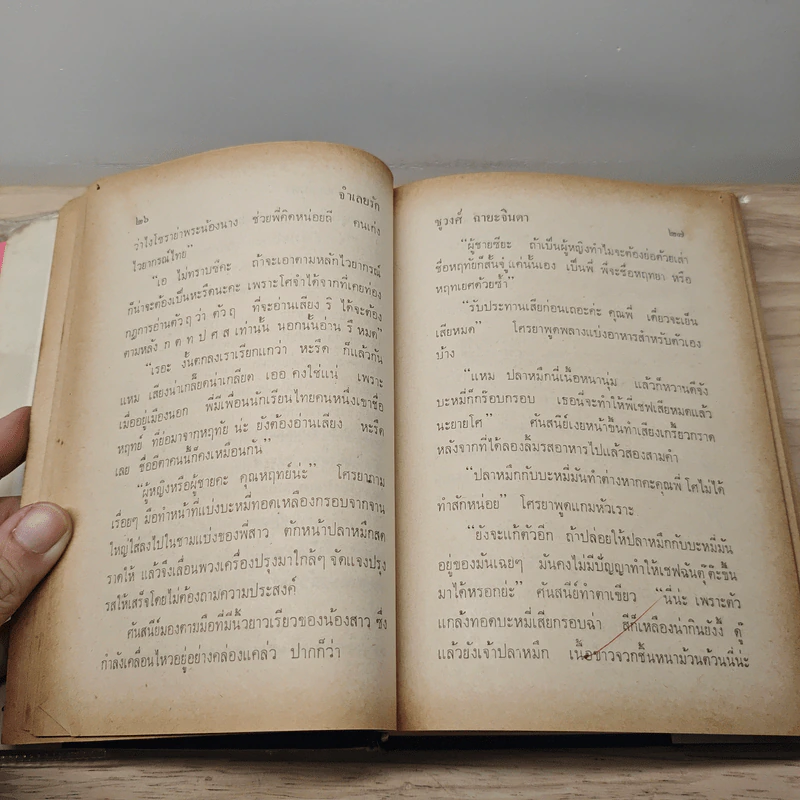 ๒๖ จำเลยรัก
ว่าไงโชรายำพระน้องนาง ช่วยพี่คิดหน่อยถี คนเก่ง
ไวยากรณ์ไทย”
“เอ ไม่ทราบซีคะ ถ้าจะเอาตามหลักไวยากรณ์
ก็น่าจะต้องเป็นหะรึดนะคะ เพราะโศจำได้จากที่เคยท่อง
กฎการอ่านตัวฤว่า ตัวฤ ที่จะอ่านเสียง ริ ได้จะต้อง
ตามหลัง ก ต ท ป ศ ส เท่านั้น นอกนั้นอ่าน รึ หมด”
“เรอะ งั้นตกลงเราเรียกแกว่า หะรึด ก็แล้วกัน
แหม เสียงน่าเกลียดน่าเกลียด เออ คงใช่แน่ เพราะ
เมื่ออยู่เมืองนอก พี่มีเพื่อนนักเรียนไทยคนหนึ่งเขาชื่อ
หฤทย์ ที่ย่อมาจากหฤทัย น่ะ ยังต้องอ่านเสียง หะรึด
เลย ชื่ออีตาคนนี้ก็คงเหมือนกัน”
“ผู้หญิงหรือผู้ชายคะ คุณหฤทย์น่ะ” โศรยาถาม
เรื่อยๆ มือทำหน้าที่แบ่งบะหมี่ทอดเหลืองกรอบจากจาน
ใหญ่ใส่ลงไปในชามแบ่งของพี่สาว ตักหน้าปลาหมึกสด
ราดให้ แล้วจึงเลื่อนพวงเครื่องปรุงมาใกล้ๆ จัดแจงปรุง
รสให้เสร็จโดยไม่ต้องถามความประสงค์
ศันสนีย์มองตามมือที่มีนิ้วยาวเรียวของน้องสาว ซึ่ง
กำลังเคลื่อนไหวอยู่อย่างคล่องแคล่ว ปากก็ว่า
ชูวงศ์ ฉายะจินดา ๒๗
“ผู้ชายซียะ ถ้าเป็นผู้หญิงทำไมจะต้องย่อด้วยเล่า
ชื่อหฤทัยก็สั้นจู๋แค่นั้นเอง เป็นพี่ พี่จะชื่อหฤทยา หรือ
หฤทเยศด้วยซ้ำ”
“รับประทานเสียก่อนเถอะค่ะ คุณพี่ เดี๋ยวจะเย็น
เสียหมด” โศรยาพูดพลางแบ่งอาหารสำหรับตัวเอง
บ้าง
“แหม ปลาหมึกนี่เนื้อหนานุ่ม แล้วก็หวานดีจัง
บะหมี่ก็กรอบกรอบ เธอนี่จะทำให้พี่เชฟเสียหมดแล้ว
นะยายโศ” ศันสนีย์เงยหน้าขึ้นทำเสียงเกรี้ยวกราด
หลังจากที่ได้ลองลิ้มรสอาหารไปแล้วสองสามคำ
“ปลาหมึกกับบะหมี่มันทำต่างหากคะคุณพี่ โศไม่ได้
ทำสักหน่อย” โศรยาพูดแกมหัวเราะ
“ยังจะแก้ตัวอีก ถ้าปล่อยให้ปลาหมึกกับบะหมี่มัน
อยู่ของมันเฉยๆ มันคงไม่มีปัญญาทำให้เชฟฉันตุ๊ต๊ะขึ้น
มาได้หรอกย่ะ” ศันสนีย์ทำตาเขียว “นี่น่ะ เพราะตัว
แกล้งทอดบะหมี่เสียกรอบฉ่า สีก็เหลืองน่ากินยังงี้ ดู๊
แล้วยังเจ้าปลาหมึก เนื้อขาวจวกชิ้นหนาม้วนต้วนนี่น่ะ